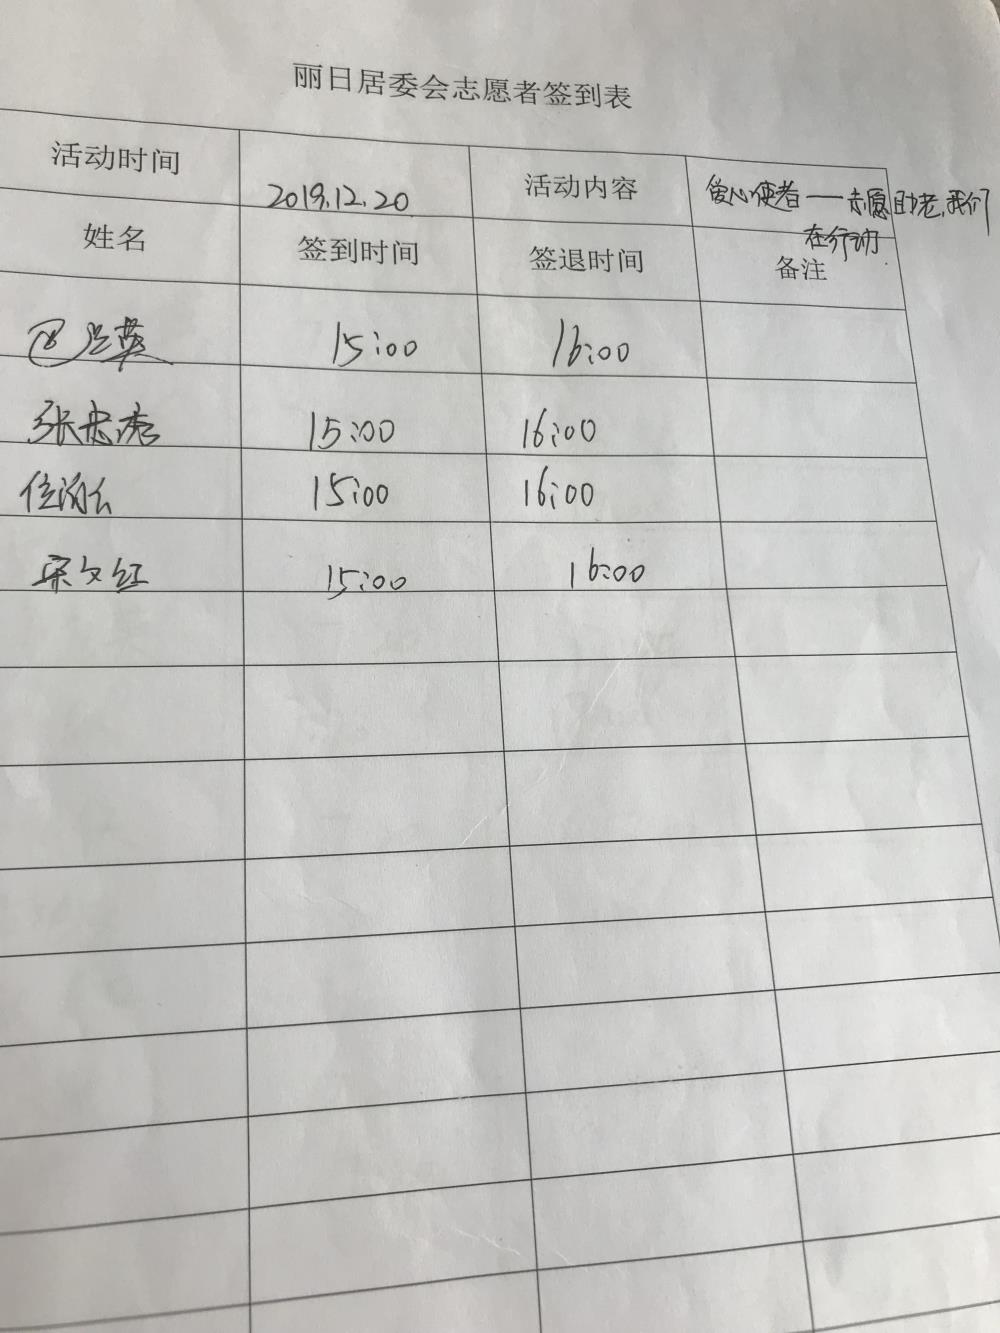 丽日居委会志愿者签到表
活动时间 2019.12.20 活动内容 爱心使者——志愿助老,我们
在行动
姓名 签到时间 签退时间 备注
15:00 16:00
张 15:00 16:00
15:00 16:00
宋文红 15:00 16:00